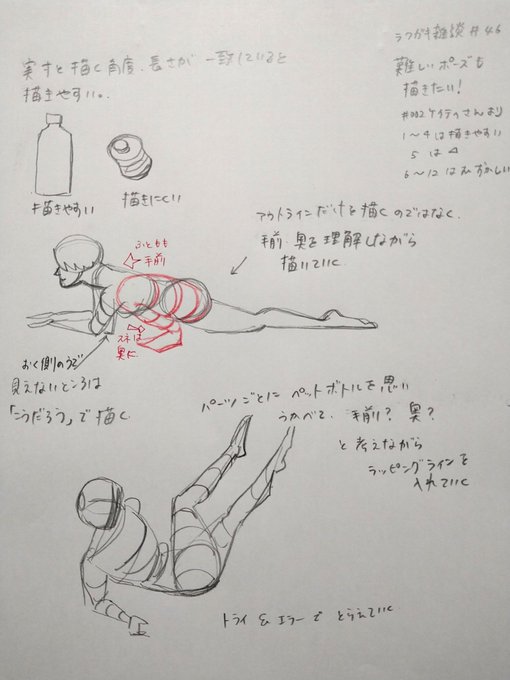 らくがき雑談 #46
実すと描く角度、長さが 一致していると
描きやすい。
難しいポーズも
描きたい!
#002 ケイティさんより
1〜4は描きやすい
5は△
6〜12はむずかしい
描きやすい
描きにくい
アウトラインだけを描くのではなく、
手前 奥を理解しながら
描いていく
ふともも
手前
スネは
奥に
おく側のうで
見えないところは
「こうだろう」で描く
パーツごとに ペットボトルを思い
うかべて、手前? 奥?
と考えながら
ラッピングラインを
入れていく
トライ&エラーで とらえていく